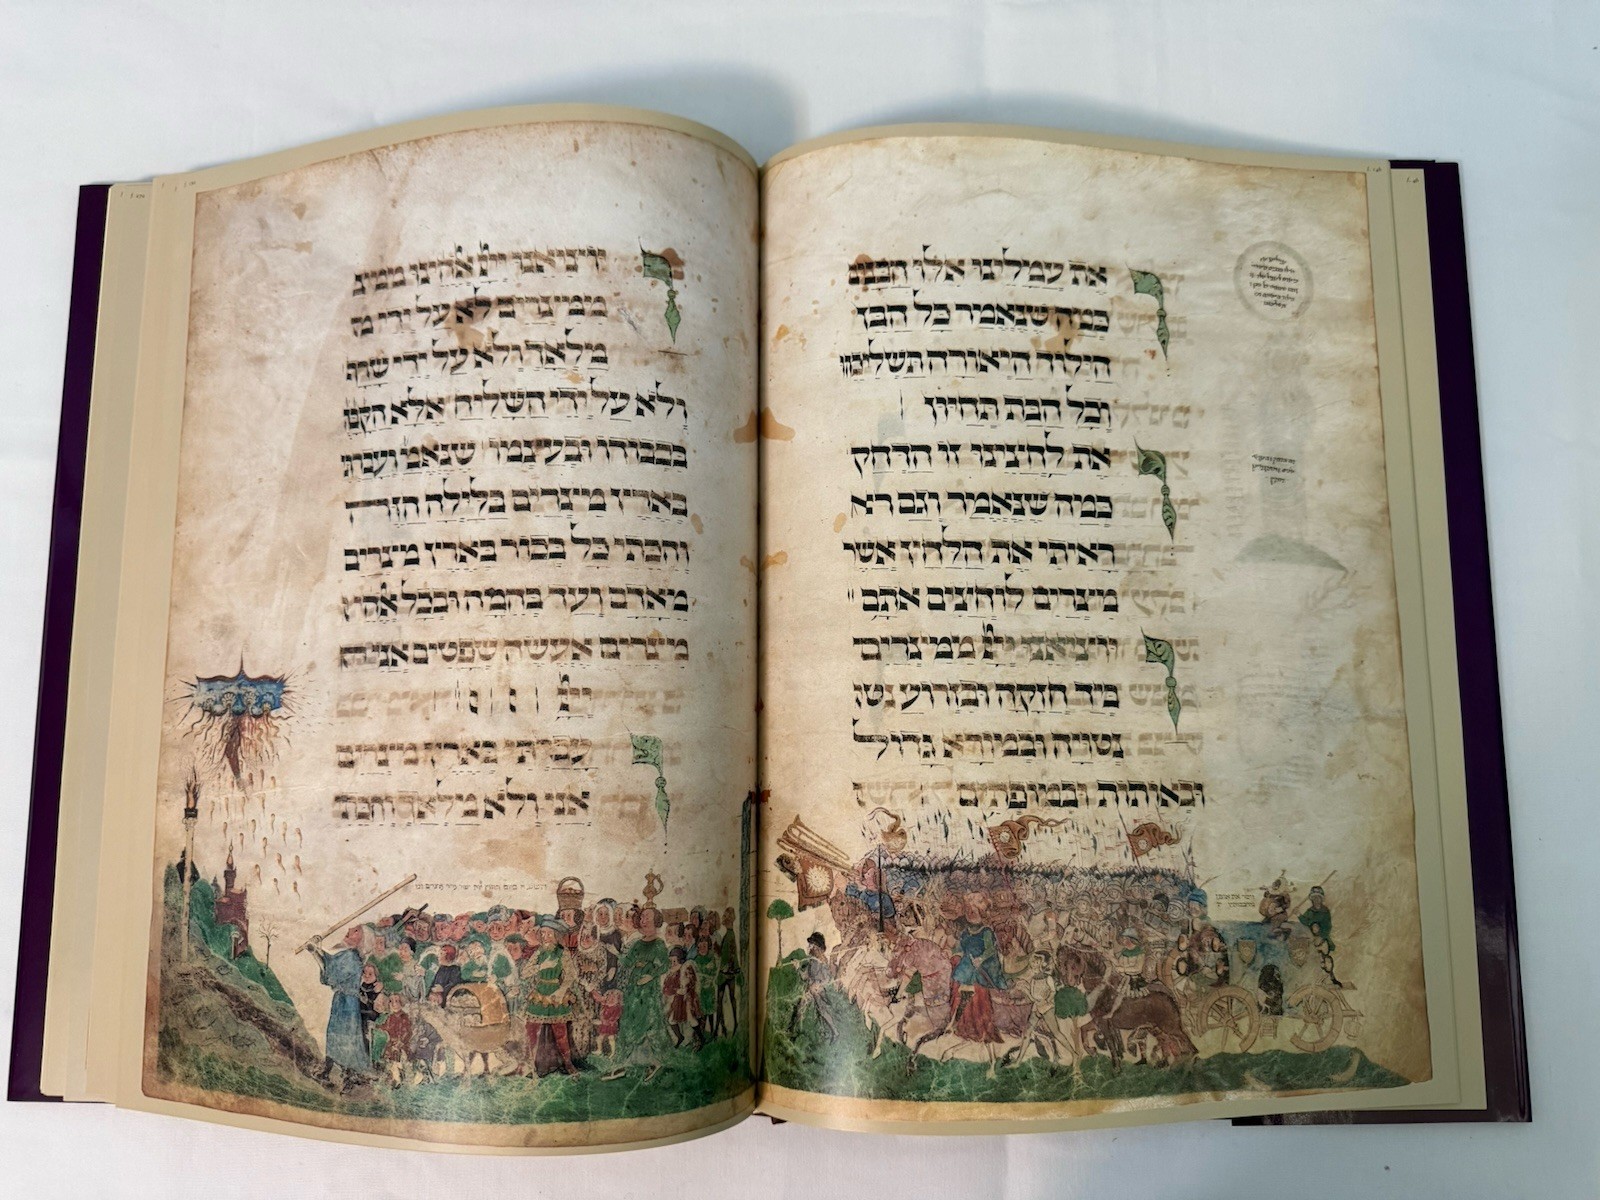 את עמלינו אלו הבנים
כמה שנאמר כל הבן
הילוד היאורה תשליכוהו
וכל הבת תחיון
את לחצינו זו הדחק
כמה שנאמר וגם רא
ראיתי את הלחץ אשר
מצרים לוחצים אתם
ויוציאנו ממצרים
ביד חזקה ובזרוע נטו
נטויה ובמורא גדול
ובאותות ובמופתים
ויוציאנו אלהינו ממצ
ממצרים לא על ידי מ
מלאך ולא על ידי שרף
ולא על ידי השליח אלא
בכבודו ובעצמו שנאמ ועברתי
בארץ מצרים בלילה הזה
והכתי כל בכור בארץ מצרים
מאדם ועד בהמה ובכל
מצרים אעשה שפטים אני
עברתי בארץ מצרים
אני ולא מלאך והכה